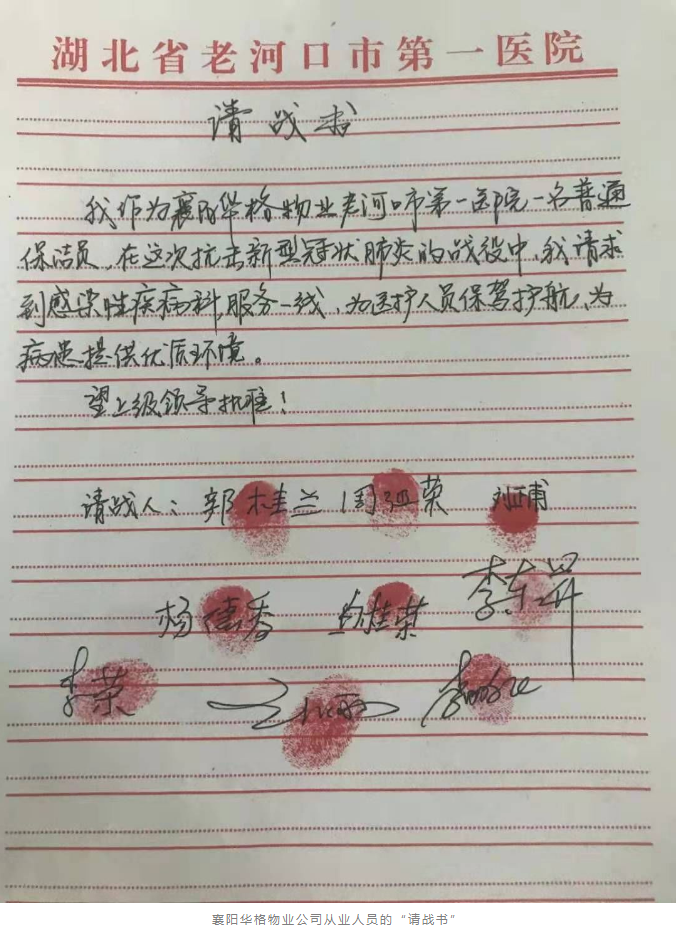 湖北省老河口市第一医院
请战书
我作为襄阳华格物业老河口市第一医院一名普通
保洁员,在这次抗击新型冠状肺炎的战役中,我请求
到感染性疾病科,服务一线,为医护人员保驾护航,为
病患提供优质环境。
望上级领导批准!
请战人:郭桂兰 周亚荣
杨德香 桂荣
李荣
襄阳华格物业公司从业人员的“请战书”